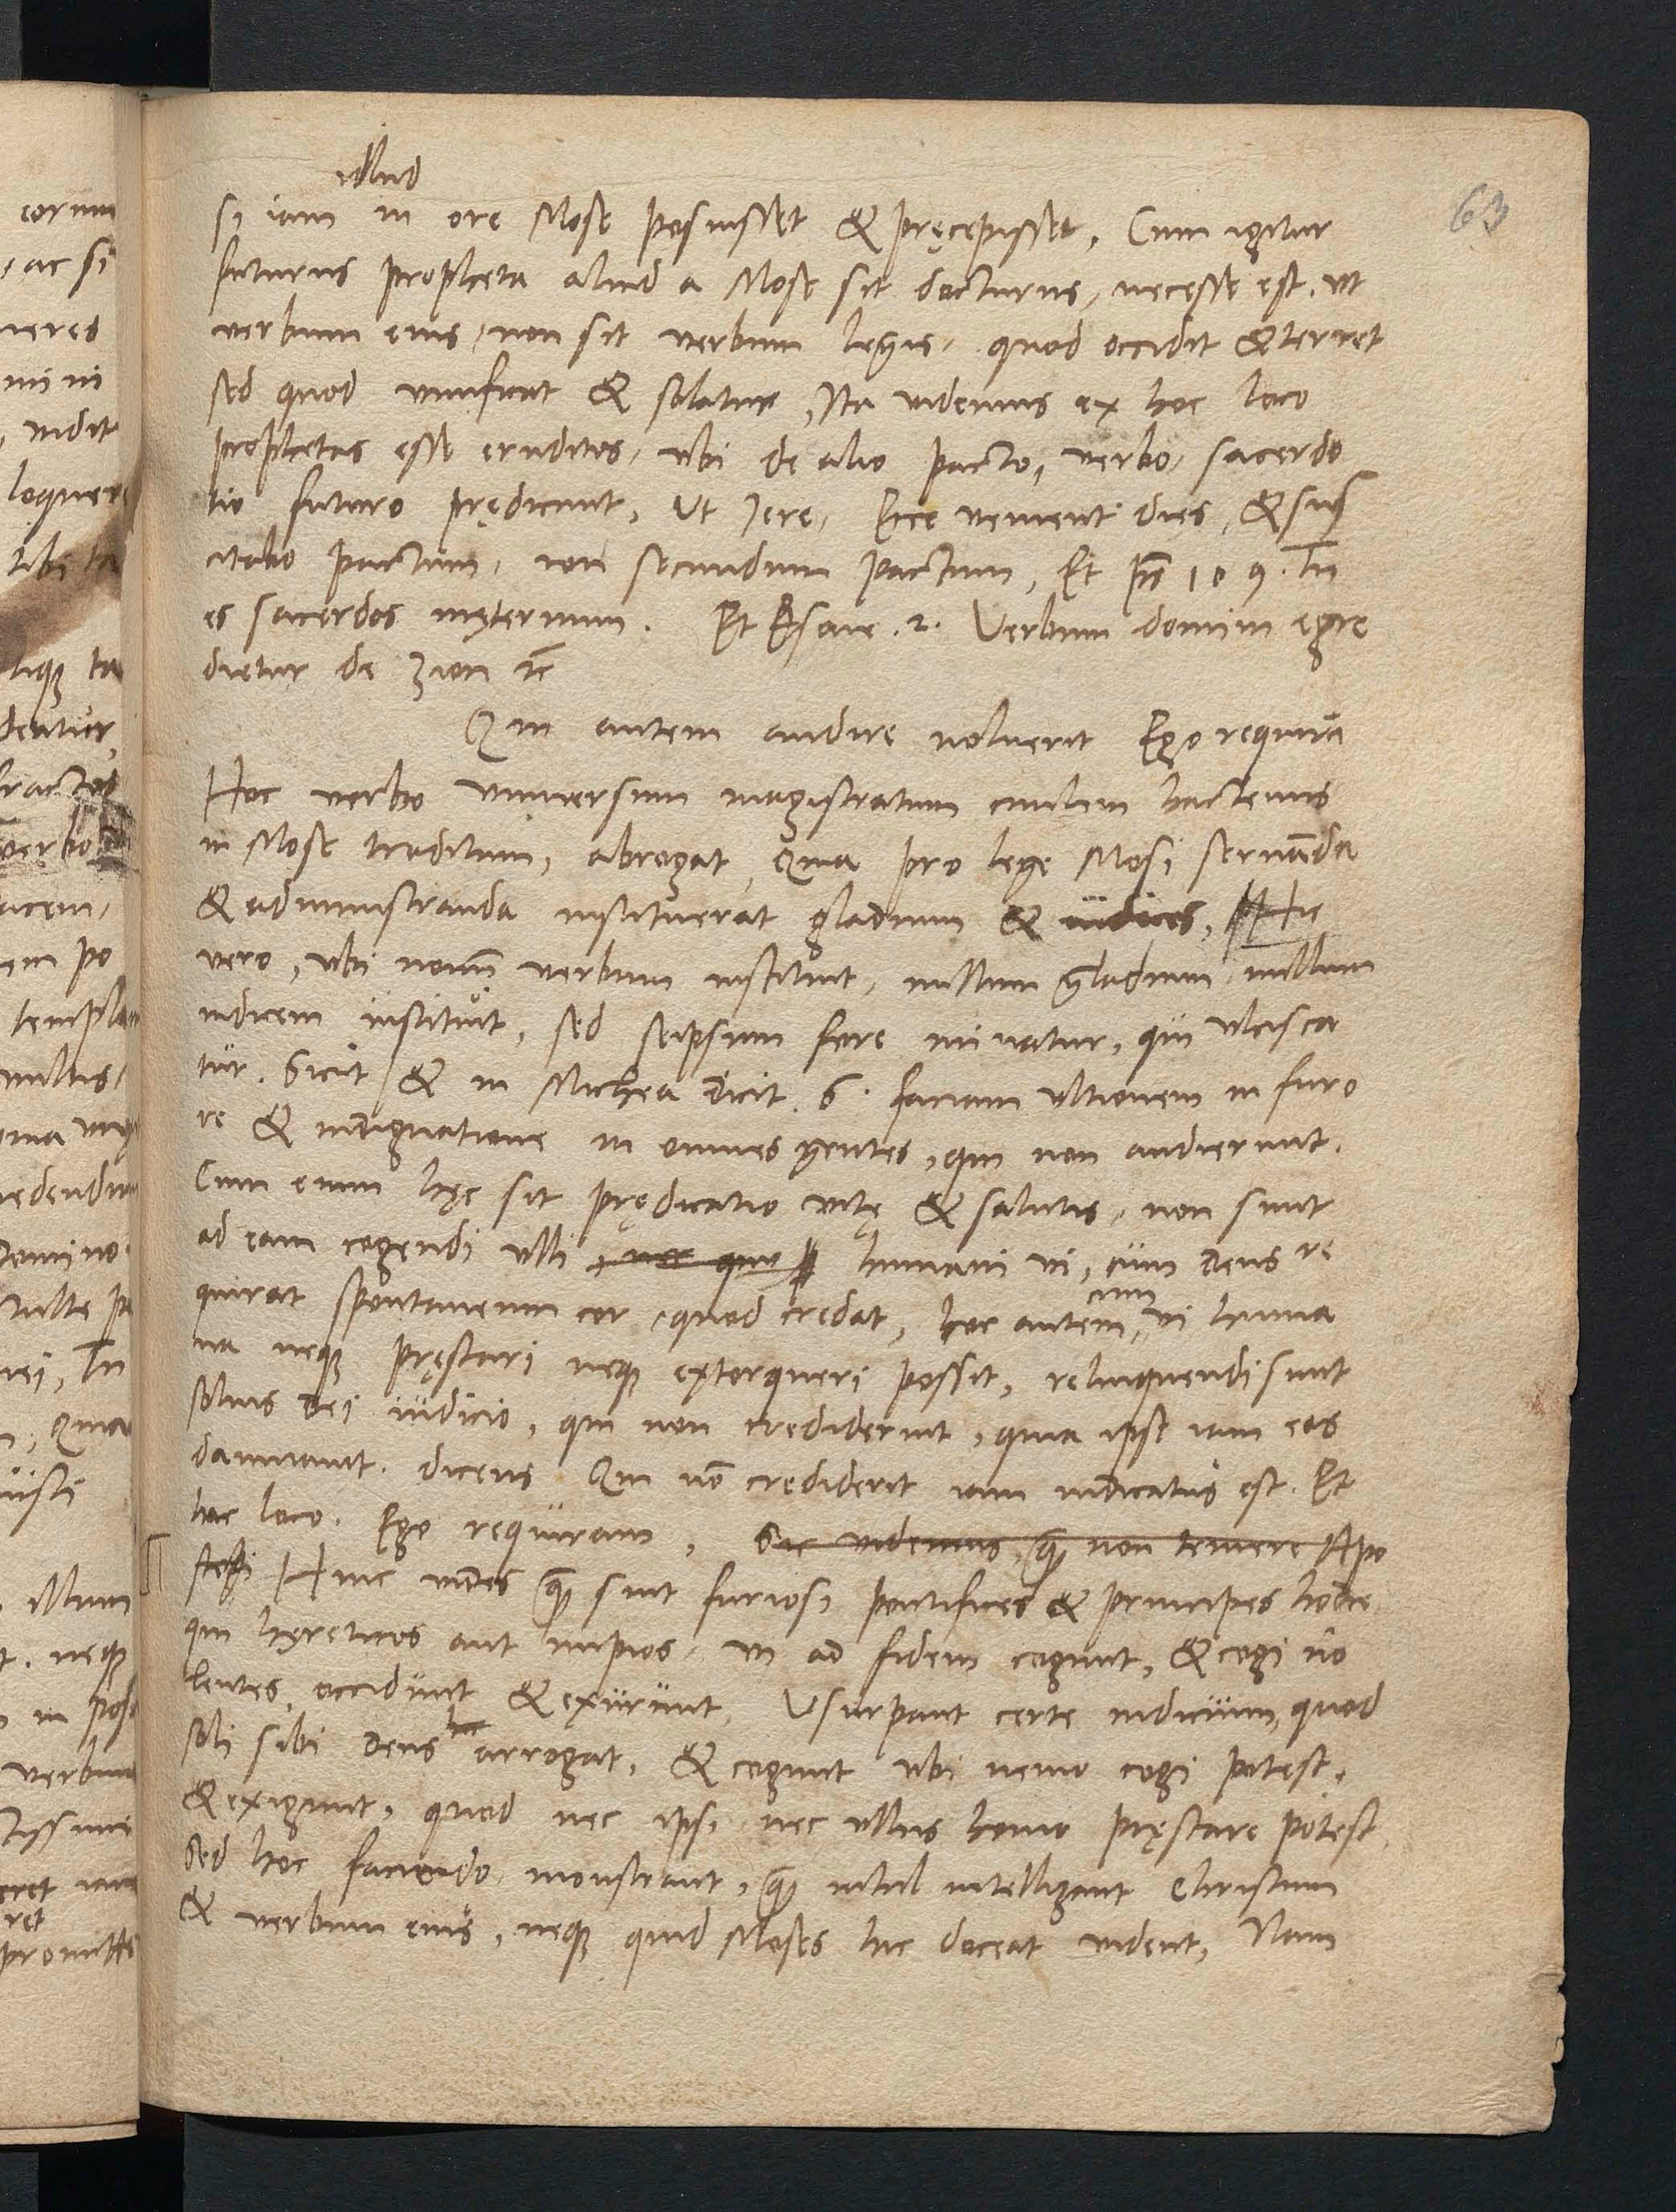 illud
si iam in ore Mose posuisset & pręcepisset, Cum igitur
63
futurus propheta aliud a Mose sit docturus, necesse est, ut
verbum eius, non sit verbum legis, quod occidit & terret
sed quod vivificat & solatur, Ita videmus ex hoc loco
prophetas esse eruditos, ubi de alio pacto, verbo, sacerdo
tio futuro prędicunt, Ut Jere, Ecce venient dies, & sus
citabo pactum, non secundum pactum, Et ps 109. Tu
es sacerdos inęternum. Et Esaie .2. Verbum domini egre
dietur de Zion ꝛc
Qui autem audire noluerit Ego requirā
Hoc verbo universum magistratum civilem hactenus
in Mose traditum, abrogat, Quia pro lege Mosi servāda
& administranda instituerat gladium & iudices, Hic
vero, ubi novū verbum instituit, nullum gladium, nullum
iudicem instituit, sed seipsum fore minatur, qui ulcisca
tur. Sicut & in Michea dicit .6. faciam ultionem in furo
re & indignatione in omnes gentes, qui non audierunt.
Cum enim hęc sit prędicatio vitę & salutis, non sunt
ad eam cogendi ulli, nec quo humani vi, cum deus re
cum
quirat spontaneum cor, quod credat, hoc autem, vi huma
na neqꝫ pręstari neqꝫ extorqueri possit, relinquendi sunt
solius dei iudicio, qui non crediderint, quia ipse iam eos
damnavit. dicens Qui nō crediderit iam iudicatus est. Et
hoc loco. Ego requiram, Sic videmus, quā non temere Apo
stoli Hinc vides quā sint furiosi pontifices & principes hodie
qui hęreticos aut impios, vi ad fidem cogunt, & cogi no
lentes, occidunt & exurunt, Usurpant certe iudicium, quod
hic
soli sibi deus arrogat, & cogunt ubi nemo cogi potest,
& exigunt, quod nec ipsi nec ullus homo pręstare potest,
Sed hoc faciendo monstrant, quā nihil intelligant Christum
& verbum eius, neqꝫ quid Moses hic doceat vident, Nam